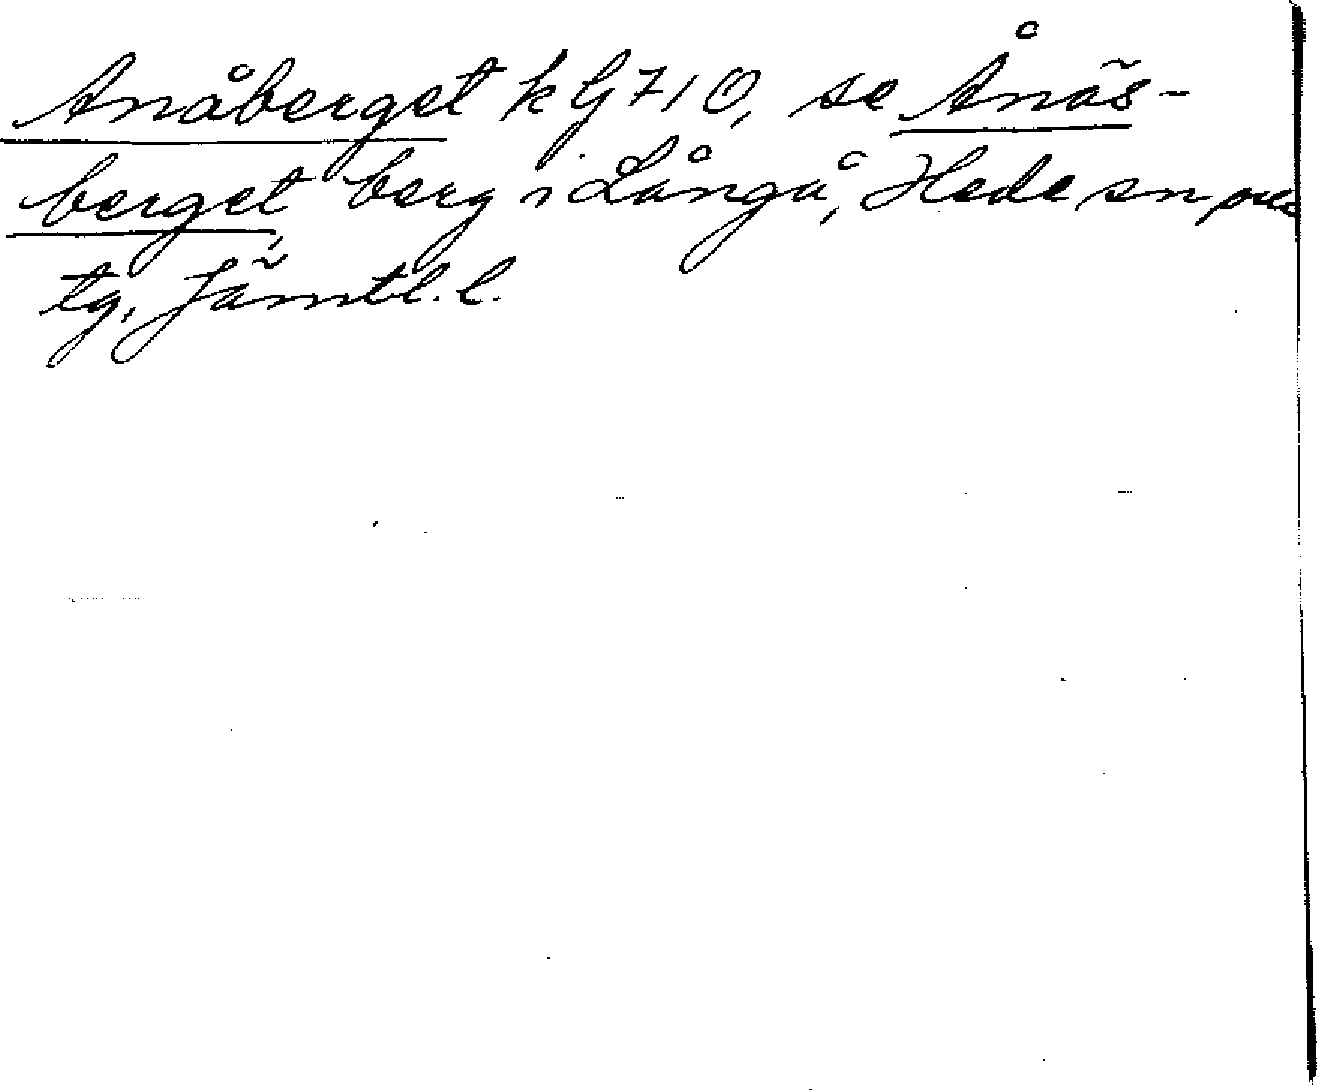 Anåberget k G 71 O, se Ånäs-
berget, berg i Långå, Hede sn och
tg, Jämtl. l.